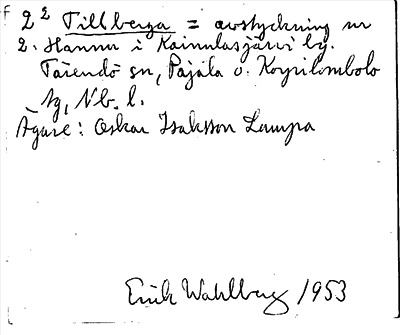 2² Tillberga = avstyckning nr
2. Hannu i Kainulasjärvi by.
Tärendö sn, Pajala o. Korpilombolo
tg, Nb. l.
Ägare: Oskar Isaksson Lampa
Erik Wahlberg 1953